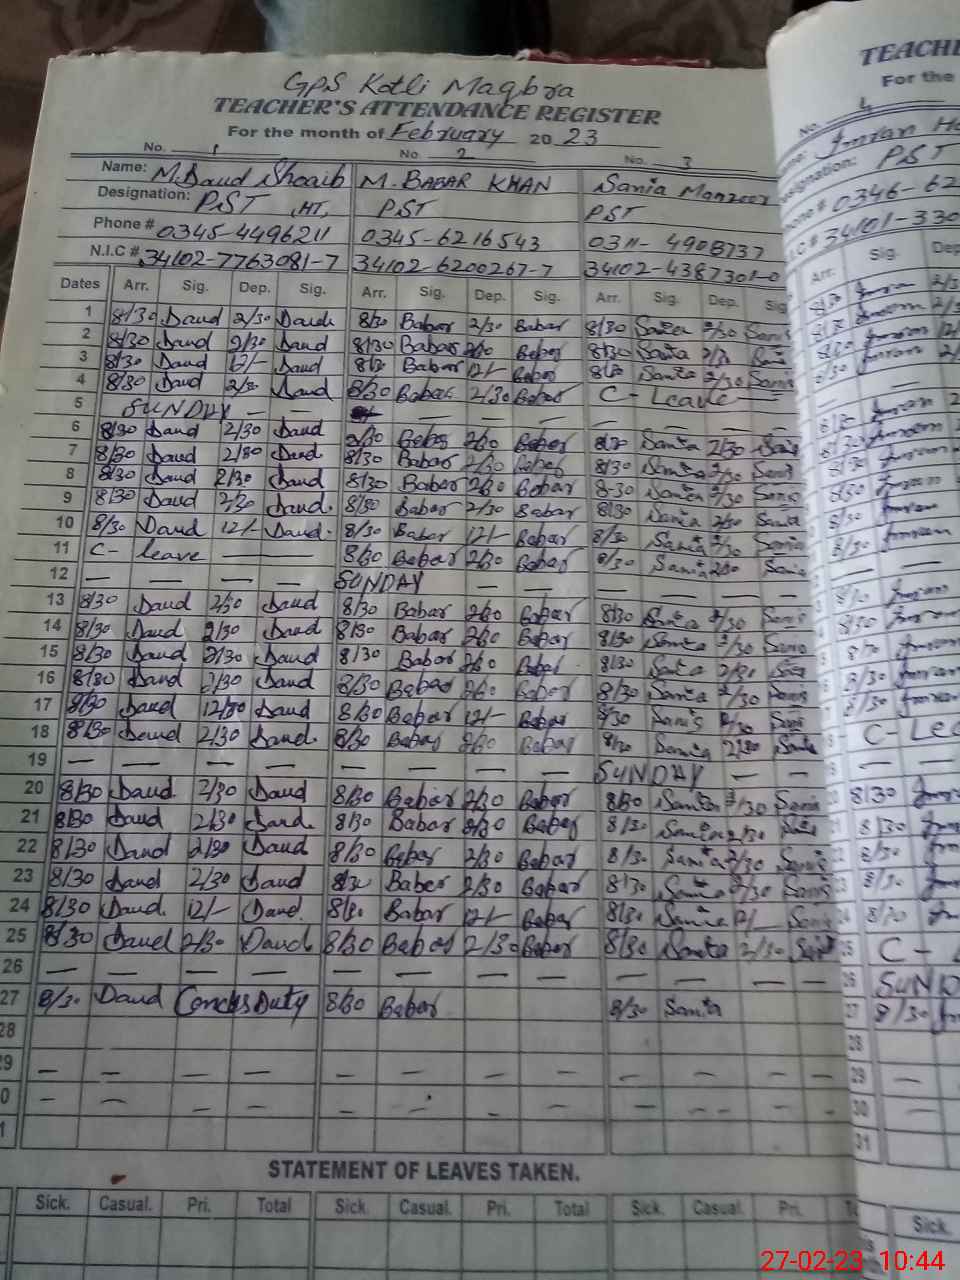 GPS Kotli Maqbra
TEACHER'S ATTENDANCE REGISTER
For the month of February 20 23
No. 1 No. 2 No. 3
Name: M. Daud Shoaib M. BABAR KHAN Sania Manzoor
Designation: PST HT, PST PST
Phone # 0345-4496211 0345-6216543 0311-4908737
N.I.C # 34102-7763081-7 34102-6200267-7 34102-4387301-0
Dates Arr. Sig. Dep. Sig. Arr. Sig. Dep. Sig. Arr. Sig. Dep. Sig
1 8/30 Daud 2/30 Daud 8/30 Babar 2/30 Babar 8/30 Sania 2/30 Sania
2 8/30 Daud 2/30 Daud 8/30 Babar 2/30 Babar 8/30 Sania 2/30 Sania
3 8/30 Daud 12/- Daud 8/30 Babar 12/- Babar 8/30 Sania 2/30 Sania
4 8/30 Daud 2/30 Daud 8/30 Babar 2/30 Babar C- Leave
5 SUNDAY — — — — — — — — — —
6 8/30 Daud 2/30 Daud 8/30 Babar 2/30 Babar 8/30 Sania 2/30 Sania
7 8/30 Daud 2/30 Daud 8/30 Babar 2/30 Babar 8/30 Sania 2/30 Sania
8 8/30 Daud 2/30 Daud 8/30 Babar 2/30 Babar 8-30 Sania 2/30 Sania
9 8/30 Daud 2/30 Daud 8/30 Babar 2/30 Babar 8/30 Sania 2/30 Sania
10 8/30 Daud 12/- Daud 8/30 Babar 12/- Babar 8/30 Sania 2/30 Sania
11 C- leave 8/30 Babar 2/30 Babar 8/30 Sania 2/30 Sania
12 — — — — SUNDAY — — — — — —
13 8/30 Daud 2/30 Daud 8/30 Babar 2/30 Babar 8/30 Sania 2/30 Sania
14 8/30 Daud 2/30 Daud 8/30 Babar 2/30 Babar 8/30 Sania 2/30 Sania
15 8/30 Daud 2/30 Daud 8/30 Babar 2/30 Babar 8/30 Sania 2/30 Sania
16 8/30 Daud 2/30 Daud 8/30 Babar 2/30 Babar 8/30 Sania 2/30 Sania
17 8/30 Daud 12/30 Daud 8/30 Babar 12/- Babar 8/30 Sania 2/30 Sania
18 8/30 Daud 2/30 Daud 8/30 Babar 2/30 Babar 8/30 Sania 2/30 Sania
19 — — — — — — — — SUNDAY — —
20 8/30 Daud 2/30 Daud 8/30 Babar 2/30 Babar 8/30 Sania 2/30 Sania
21 8/30 Daud 2/30 Daud 8/30 Babar 2/30 Babar 8/30 Sania 2/30 Sania
22 8/30 Daud 2/30 Daud 8/30 Babar 2/30 Babar 8/30 Sania 2/30 Sania
23 8/30 Daud 2/30 Daud 8/30 Babar 2/30 Babar 8/30 Sania 2/30 Sania
24 8/30 Daud 12/- Daud 8/30 Babar 12/- Babar 8/30 Sania 12/- Sania
25 8/30 Daud 2/30 Daud 8/30 Babar 2/30 Babar 8/30 Sania 2/30 Sania
26 — — — — — — — — — — — —
27 8/30 Daud Duty 8/30 Babar 8/30 Sania
28
29 — — — — — — — — — — — —
30 — — — — — — — — — — — —
STATEMENT OF LEAVES TAKEN.
Sick. Casual. Pri. Total Sick. Casual. Pri. Total Sick. Casual. Pri.
TEACH
For the
No. 4
Imran
PST
0346-62
34101-330
Arr. Sig. Dep
C- Lea
20 8/30
25 C-
26 SUND
27 8/30
28
29 —
30 —
31
Sick
27-02-23 10:44